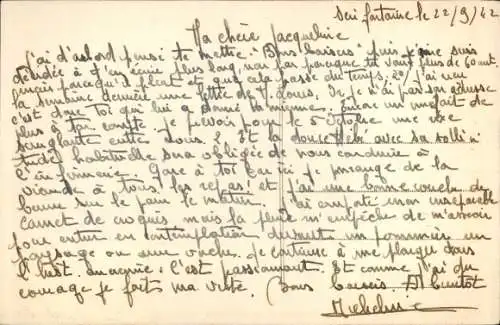 le 22/9/42
Ma chère Jacqueline
J'ai d'abord pensé te mettre "Bons baisers" puis je me suis
décidée à t'en écrire plus long, non pas parce que tu vaux plus de 60 aut.
mais parce qu'il pleut et que cela passe du temps. 2°/ J'ai reçu
la semaine dernière une lettre de Où je n'ai pas son adresse
c'est donc toi qui lui a donné la mienne. Encore un méfait de
plus à ton compte. Je prévois pour le 5 Octobre une rixe
sanglante entre nous 2. Et la douce Bébé avec sa
habituelle sera obligée de nous conduire à
l'infirmerie. Gare à toi car ici je mange de la
viande à tous les repas! et j'ai une bonne couche de
beurre sur le pain le matin. J'ai emporté mon inséparable
carnet de croquis mais la pluie m'empêche de m'asseoir
pour entrer en contemplation devant un pommier, un
paysage ou une vache. Je continue à me plonger dans
l'hist. c'est passionnant. Et comme j'ai du
courage je fais ma verte. Bons baisers. A bientôt
Micheline